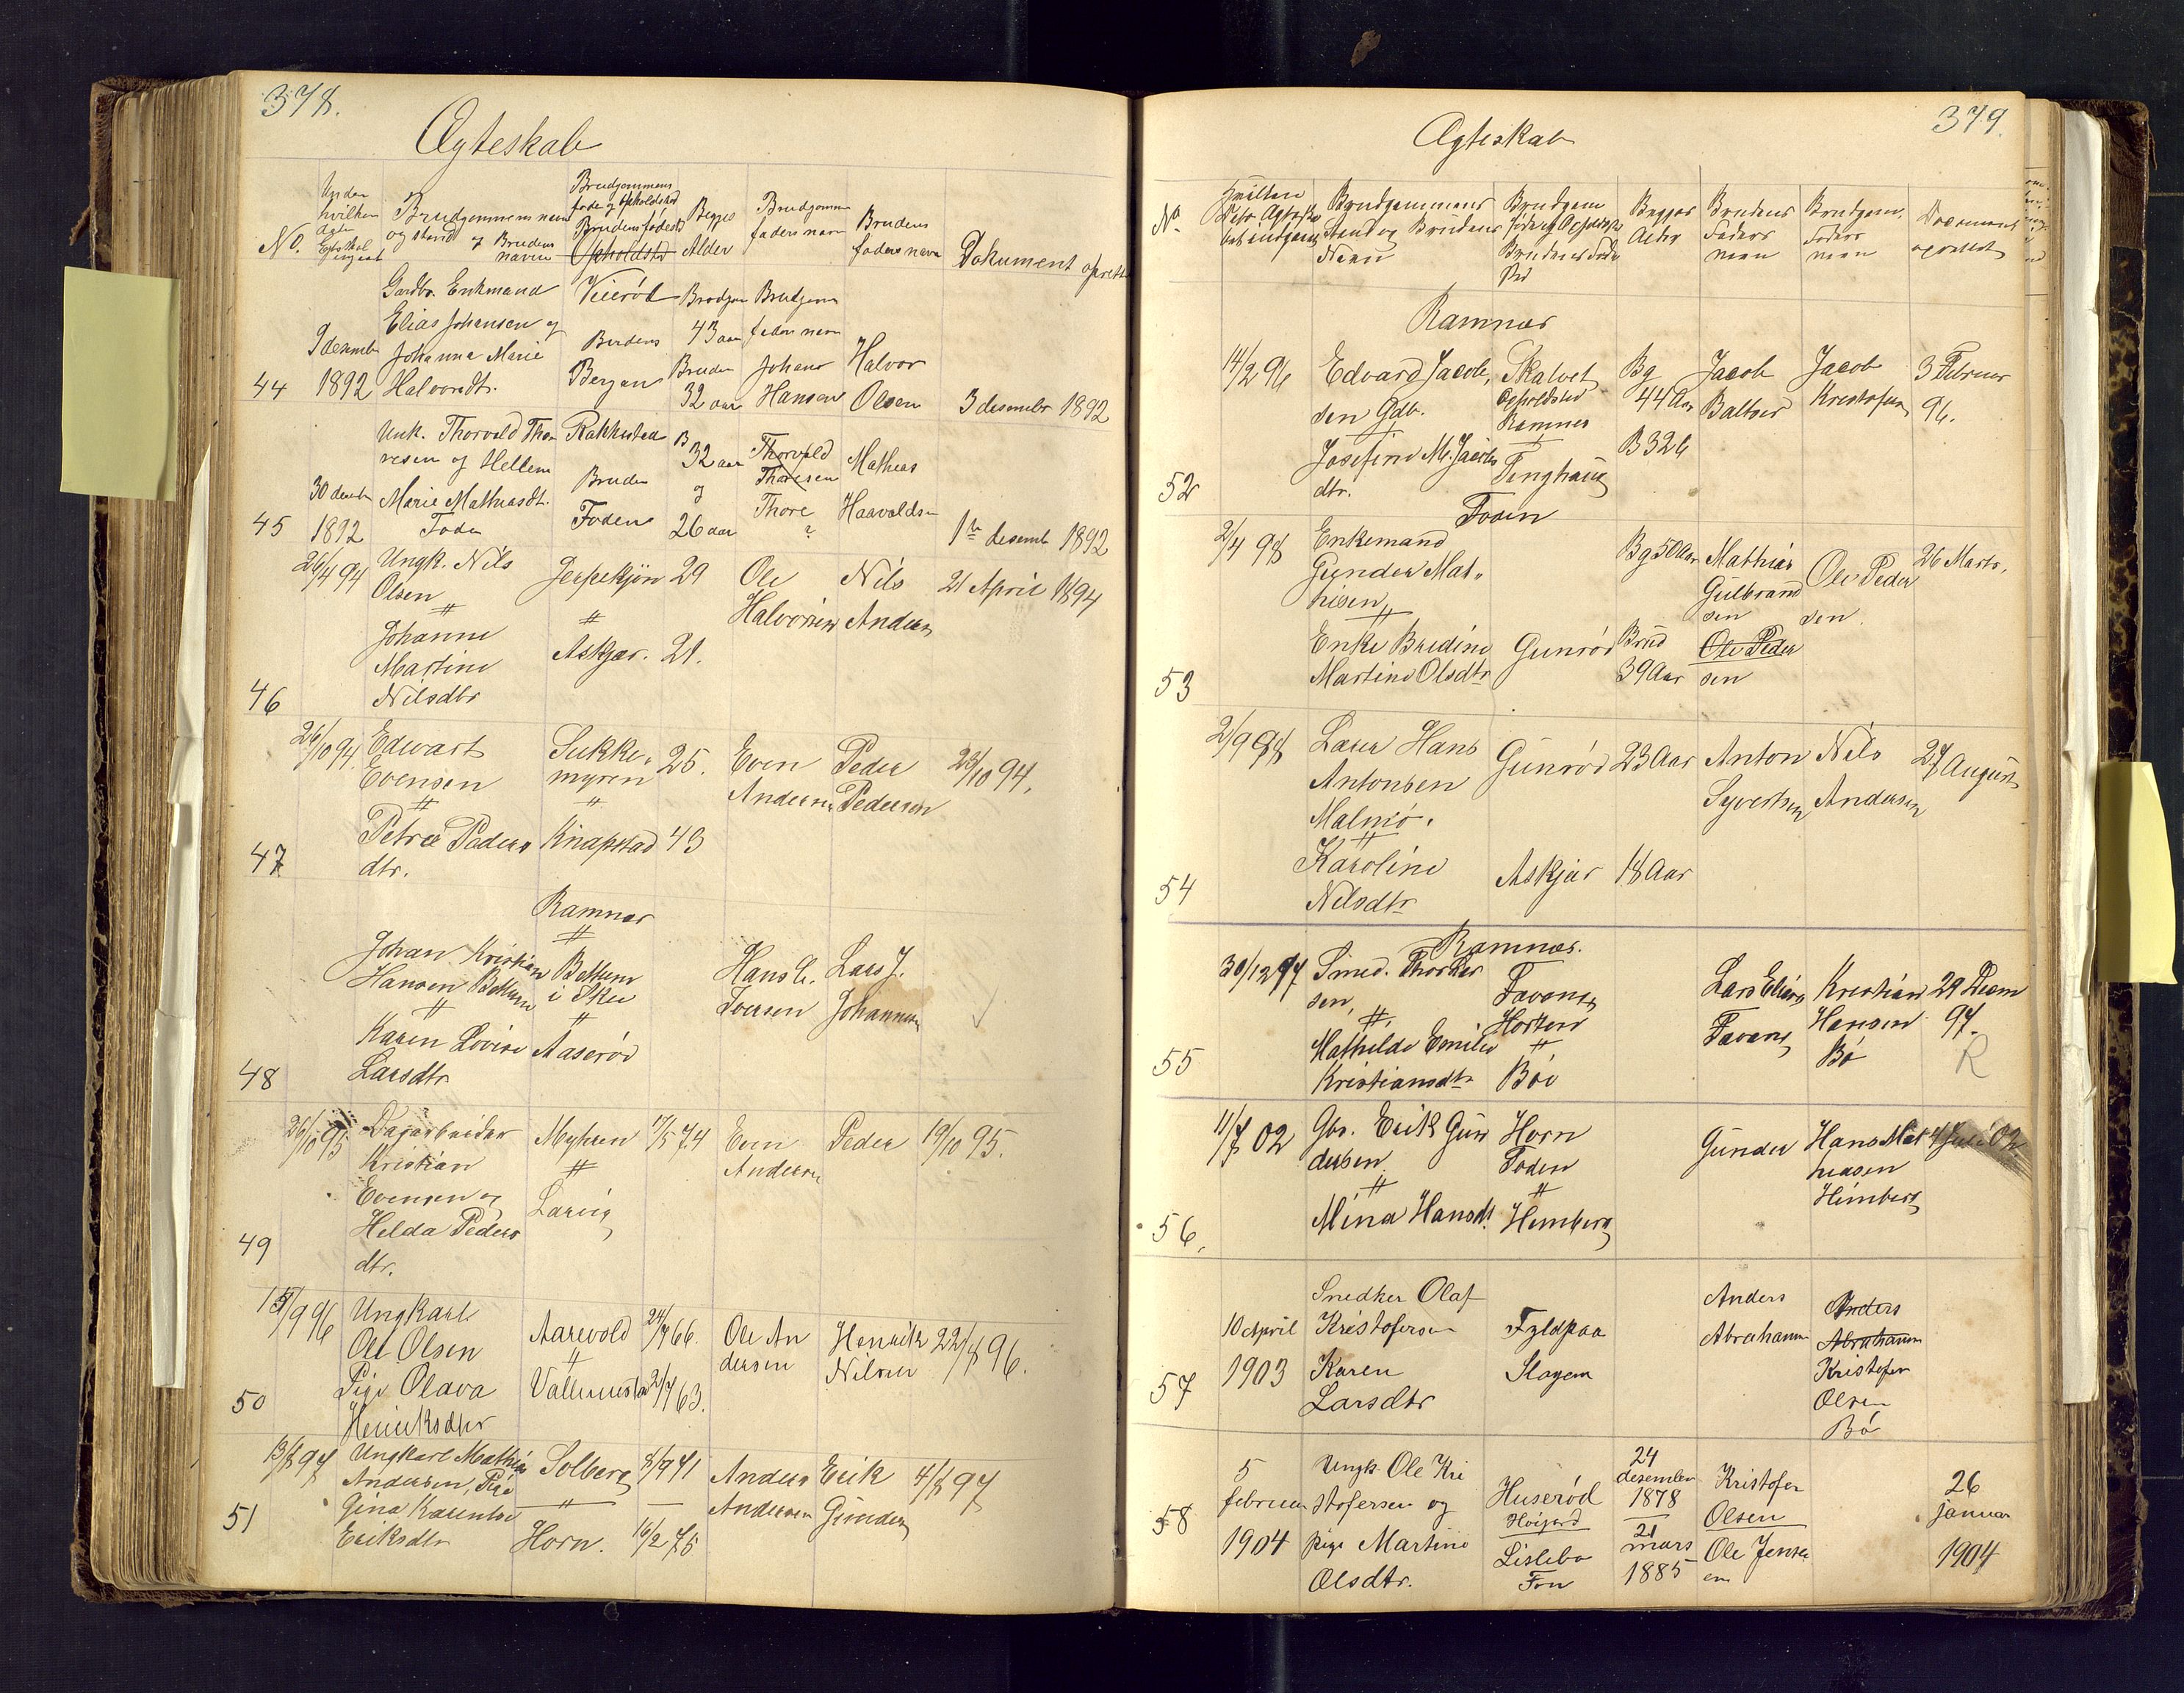 378.
Ægteskab
No.
Under hvilken
Brudgommens navn og stand og Brudens navn
Brudgommens føde og opholdsted Brudens fødested Opholdsted
Begges Alder
Brudgommens faders navn
Brudens faders navn
Dokument oprettet
44
9 desember 1892
Gardbr. Enkmand
Elias Johansen og
Johanna Marie
Halvorsdt.
Brudens
Bergan
43 aar
Bruden
32 aar
Johans
Hansen
Halvor
Olsen
3 desember 1892
45
30 desember
1892
Unk. Thorvald Tho
resen og Hellem
Marie Mathiasdt.
Foden
Rakkestad
Bruden
Foden
B
32 aar
og
26 aar
Thorvald
Thoresen
Thore
?
Mathias
Haavaldsen
1te desemb 1892
46
26/4 94
Ungk. Nils
Olsen
"
Johanne
Martine
Nilsdtr
Jerpekjøn
"
Askjær.
29
21.
Ole
Halvorsen
Nils
Anders
21 April 1894
47
26/10 94.
Edvart
Evensen
"
Petra Peders
dtr.
Sukke,
myren
"
Knapstad
25.
43
Even
Andersen
Peder
Pedersen
23/10 94.
Ramnes
"
48
Johan Kristian
Hansen Bettum
"
Karen Lovise
Larsdtr
Bettum
i Skee
"
Aaserød
Hans C.
Iversen
Lars J.
Johannesen
49
26/10 95
Dagarbeider
Kristian
Evensen og
Helda Peders
dtr.
Myhren
"
Larvig
17/5 74
Even
Andersen
Peder
19/10 95.
50
Ungkarl
Ole Olsen
Pige Olava
Henriksdtr
Aarevold
"
24/4 66.
Ole An
dersen
Henrik
Nilsen
22/8 96.
51
13/8 97
Ungkarl Mathias
Andersen, Pie
Gina Karentine
Eriksdtr
Solberg
"
Horn.
8/9 71
16/2 75
Anders
Andersen
Erik
Gunders
4/8 97
379.
Ægteskab
No
Brudgommens
Navn og Brudens
Navn
Begges
Alder
Brudens
Faders
navn
Brudgom.
Faders
navn
Document
oprettet
Ramnes
52
14/2 96
Edvard Jacob,
sen Gdb.
"
Josefine M. Jacobs
dtr.
Skalvet
Opholdsted
Ramnes
"
Tinghaug
Bg
44 Aar
B 32 6
Jacob
Baltser
Jacob
Kristofersen
3 Februar
96.
Foden
53
2/4 98
Enkemand
Gunder Mat,
hisen
"
Enke Bredine
Martine Olsdtr
Gunrød
Bg 50 Aar
Brud
39 Aar
Mathias
Gulbrand
sen
Ole Peder
sen
Ole Peder
sen.
26 Marts,
54
2/9 98
Hans
Antonsen
Malmö.
"
Karoline
Nilsdtr
Gunrød
Askjær
23 Aar
18 Aar
Anton
Syvertsen
Nils
Andersen
27 August
Ramnes.
55
30/12 97
Smed. Thor Lar
sen,
"
Mathilde Emilie
Kristiansdtr
Favang
Horten
"
Böe
Lars Elias
Favang
Kristian
Hansen
Bö
29 Desem
97.
R
56.
11/7 02
Gbr. Erik Gun
dersen
"
Mina Hansdt.
Horn
Foden
"
Himberg
Gunder
Hans Mat
hiasen
Himberg
4 Juli 02
57
10 April
1903
Snedker Olaf
Kristofersen
Karen
Larsdtr
Fyldpaa
Slagen
Anders
Abraham
Anders
Abraham
Kristofer
Olsen
Bö
58
5
februar
1904
Ungk Ole Kri
stofersen og
pige Martine
Olsdtr.
Huserød
Lislebo
Fon
24
desember
1878
21
mars
1885
Kristofer
Olsen
Ole Jens
en
26
januar
1904